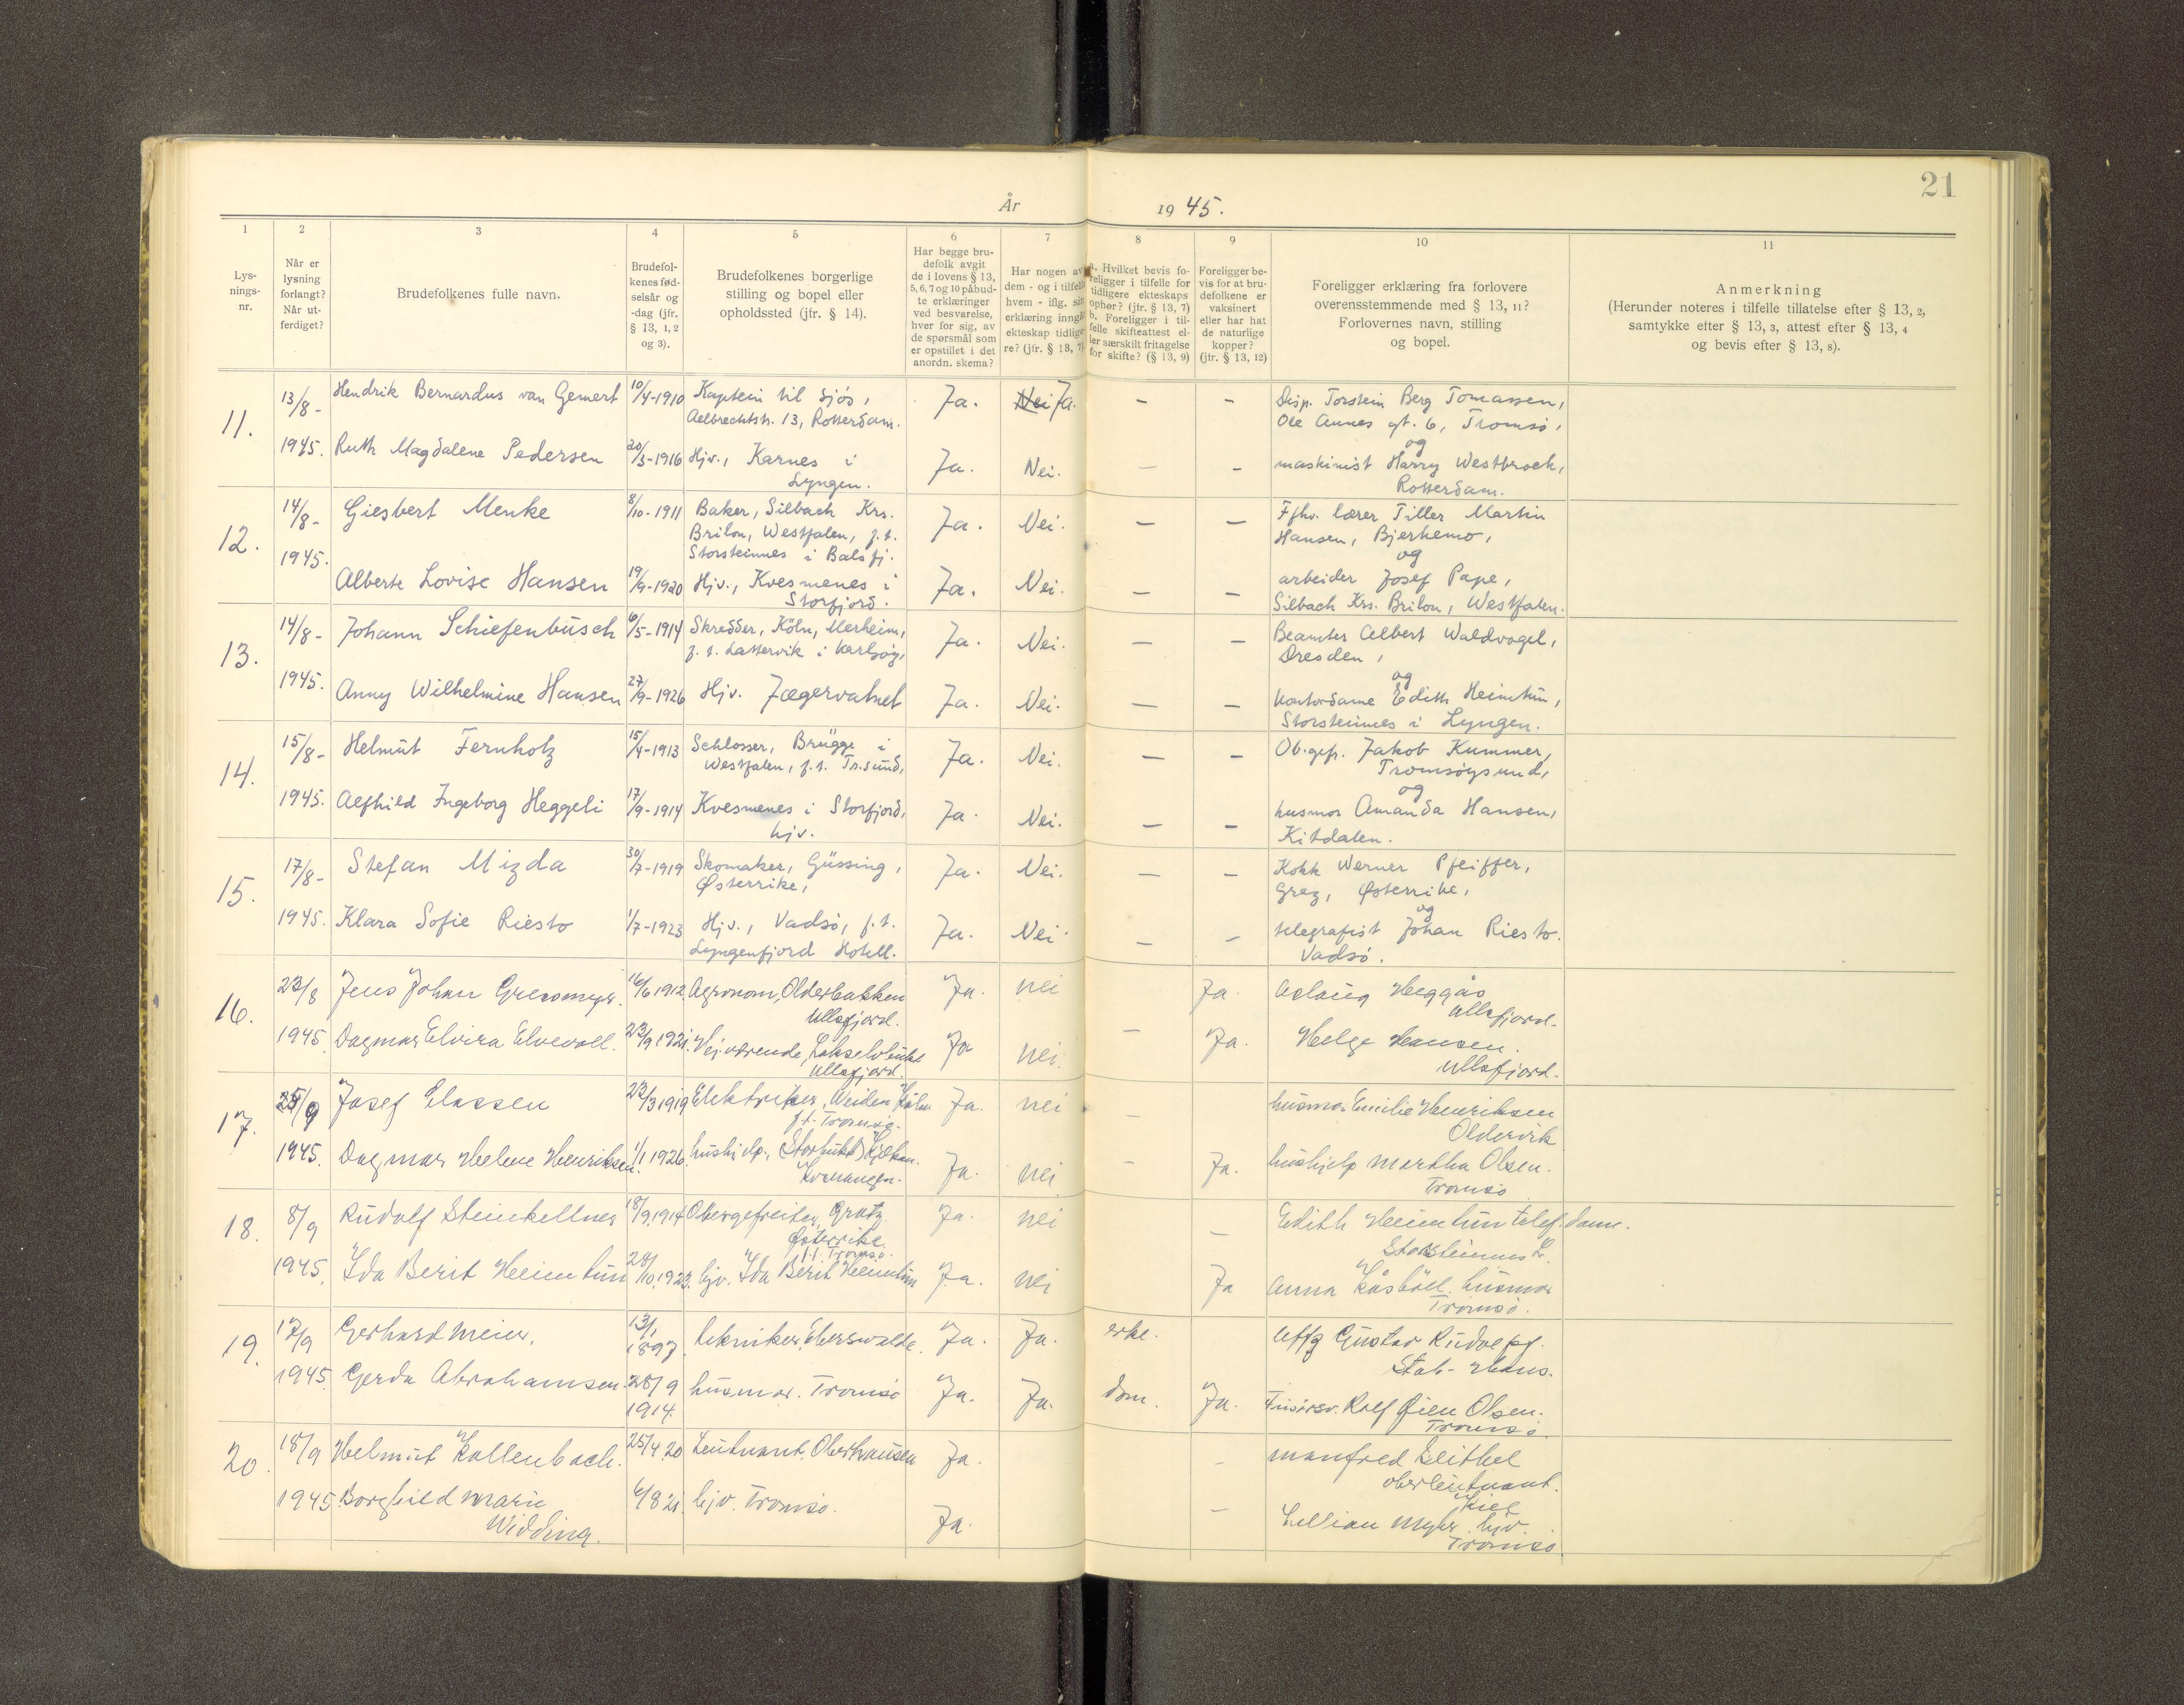 21
År 19 45.
1 2 3 4 5 6 7 8 9 10 11
Lys-
nings-
nr.
Når er
lysning
forlangt?
Når ut-
ferdiget?
Brudefolkenes fulle navn.
Brudefol-
kenes fød-
selsår og
-dag (jfr.
§ 13, 1, 2
og 3).
Brudefolkenes borgerlige
stilling og bopel eller
opholdssted (jfr. § 14).
Har begge bru-
defolk avgit
de i lovens § 13,
5, 6, 7 og 10 påbud-
te erklæringer
ved besvarelse,
hver for sig, av
de spørsmål som
er opstillet i det
anordn. skema?
Har nogen av
dem - og i tilfelle
hvem - iflg. sin
erklæring inngå
ekteskap tidlige
re? (jfr. § 13, 7)
a. Hvilket bevis fo-
religger i tilfelle for
tidligere ekteskaps
ophør? (jfr. § 13, 7)
b. Foreligger i til-
felle skifteattest el-
ler særskilt fritagelse
for skifte? (§ 13, 9)
Foreligger be-
vis for at bru-
defolkene er
vaksinert
eller har hat
de naturlige
kopper?
(jfr. § 13, 12)
Foreligger erklæring fra forlovere
overensstemmende med § 13, 11?
Forlovernes navn, stilling
og bopel.
Anmerkning
(Herunder noteres i tilfelle tillatelse efter § 13, 2,
samtykke efter § 13, 3, attest efter § 13, 4
og bevis efter § 13, 8).
11.
13/8 - Hendrik Bernardus van Gemert 10/4-1910 Kaptein til sjøs, Ja. Nei Ja. - - Disp. Torstein Berg Tomassen,
Aelbrechtstr. 13, Rotterdam. Ole Aunes gt. 6, Tromsø,
og
1945. Ruth Magdalene Pedersen 20/3-1916 Hjv., Karnes i Ja. Nei. - - maskinist Harry Westbroek,
Lyngen. Rotterdam.
12.
14/8 - Giesbert Menke 8/10-1911 Baker, Silbach Krs. Ja. Nei. - - Ffhv. lærer Tiller Martin
Brilon, Westfalen, f.t. Hansen, Bjerkemo,
1945. Storsteinnes i Balsfj. og
Alberte Lovise Hansen 19/9-1920 Hjv., Kvesmenes i Ja. Nei. - - arbeider Josef Pape,
Storfjord. Silbach Krs. Brilon, Westfalen.
13.
14/8 - Johann Schiefenbusch 6/5-1914 Skredder, Köln, Merheim, Ja. Nei. - - Beamter Albert Waldvogel,
f.t. Lattervik i Karlsøy, Dresden,
og
1945. Anny Wilhelmine Hansen 27/9-1926 Hjv. Jægervatnet Ja. Nei. - - kontordame Edith Heimtun,
Storsteinnes i Lyngen.
14.
15/8 - Helmut Fernholz 15/4-1913 Schlosser, Brügge i Ja. Nei. - - Ob.gefr. Jakob Kummer,
Westfalen, f.t. Tr.sund, Tromsøysund,
og
1945. Alfhild Ingeborg Heggeli 17/9-1914 Kvesmenes i Storfjord, Ja. Nei. - - husmor Amanda Hansen,
hjv. Kitdalen.
15.
17/8 - Stefan Mizda 30/7-1919 Skomaker, Güssing, Ja. Nei. - - Kokk Werner Pfeiffer,
Østerrike, Graz, Østerrike,
og
1945. Klara Sofie Riesto 1/7-1923 Hjv., Vadsø, f.t. Ja. Nei. - - telegrafist Johan Riesto.
Lyngenfjord Hotell. Vadsø.
16.
23/8 Jens Johan 16/6 1912 Agronom, Olderbakken Ja. nei Ja. Aslaug Heggås
Ullsfjord. Ullsfjord.
1945. Dagmar Elvira Elvevoll. 23/9 1921. Hejværende, Ja nei. - Ja. Helge Hansen.
Ullsfjord. Ullsfjord.
17.
25/9 Josef Classen 23/3 1919 Elektriker, Weiden Köln Ja. nei - husmor Emilie Henriksen
f.t. Tromsø. Oldervik
1945. Dagmar Helene Henriksen 1/1 1926. hushjelp., Ja. nei - Ja. hushjelp Martha Olsen.
Kvænangen. Tromsø
18.
8/9 Rudolf Steinkellner 18/9.1914 Obergefreiter, Gratz. Ja. nei - Edith Heimtun telef.dame.
Østerrike Storsteinnes L.
f.t. Tromsø.
1945. Ida Berit Heimtun 28/10.1923. hjv. Ida Berit Heimtun Ja. nei Ja Anna husmor
Tromsø.
19.
17/9 Gerhard Meier. 13/1 1897 tekniker, Eberswalde. Ja. Ja. erkl. Uffz Gustav Rudolph.
Stab-
1945. Gerda Abrahamsen. 28/9 1914. husmor. Tromsø Ja. Ja. dom. Ja. Frisørsv. Rolf Olsen.
Tromsø.
20.
18/9 Helmut Kallenbach. 25/4 20 Leutnant, Oberhausen Ja. - Manfred
oberleutnant.
Kiel
1945. Borghild Marie 6/8 21. hjv. Tromsø. Ja. - Lillian Myhr. hjv.
Widding. Tromsø.